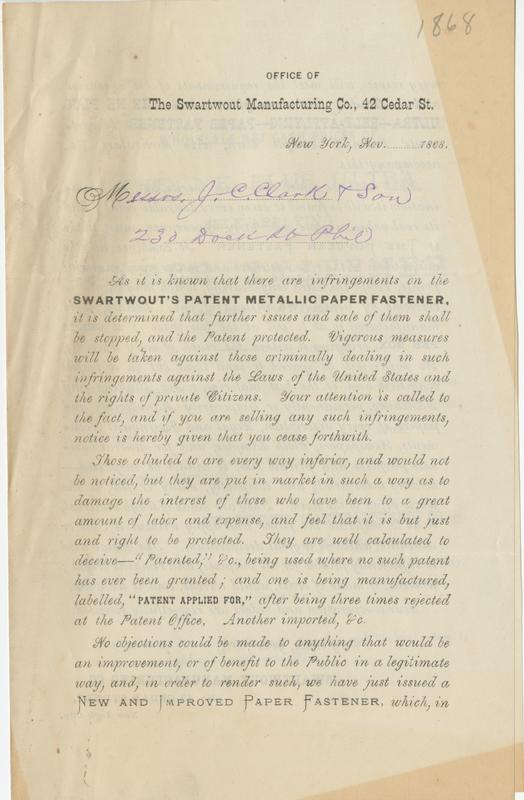 1868
OFFICE OF
The Swartwout Manufacturing Co., 42 Cedar St.
New York, Nov. 1868.
Messrs. J. C. Clark & Son
230 Dock St Phil
As it is known that there are infringements on the
SWARTWOUT'S PATENT METALLIC PAPER FASTENER,
it is determined that further issues and sale of them shall
be stopped, and the Patent protected. Vigorous measures
will be taken against those criminally dealing in such
infringements against the Laws of the United States and
the rights of private Citizens. Your attention is called to
the fact, and if you are selling any such infringements,
notice is hereby given that you cease forthwith.
Those alluded to are every way inferior, and would not
be noticed, but they are put in market in such a way as to
damage the interest of those who have been to a great
amount of labor and expense, and feel that it is but just
and right to be protected. They are well calculated to
deceive—"Patented," &c., being used where no such patent
has ever been granted; and one is being manufactured,
labelled, "PATENT APPLIED FOR," after being three times rejected
at the Patent Office. Another imported, &c.
No objections could be made to anything that would be
an improvement, or of benefit to the Public in a legitimate
way, and, in order to render such, we have just issued a
NEW AND IMPROVED PAPER FASTENER, which, in